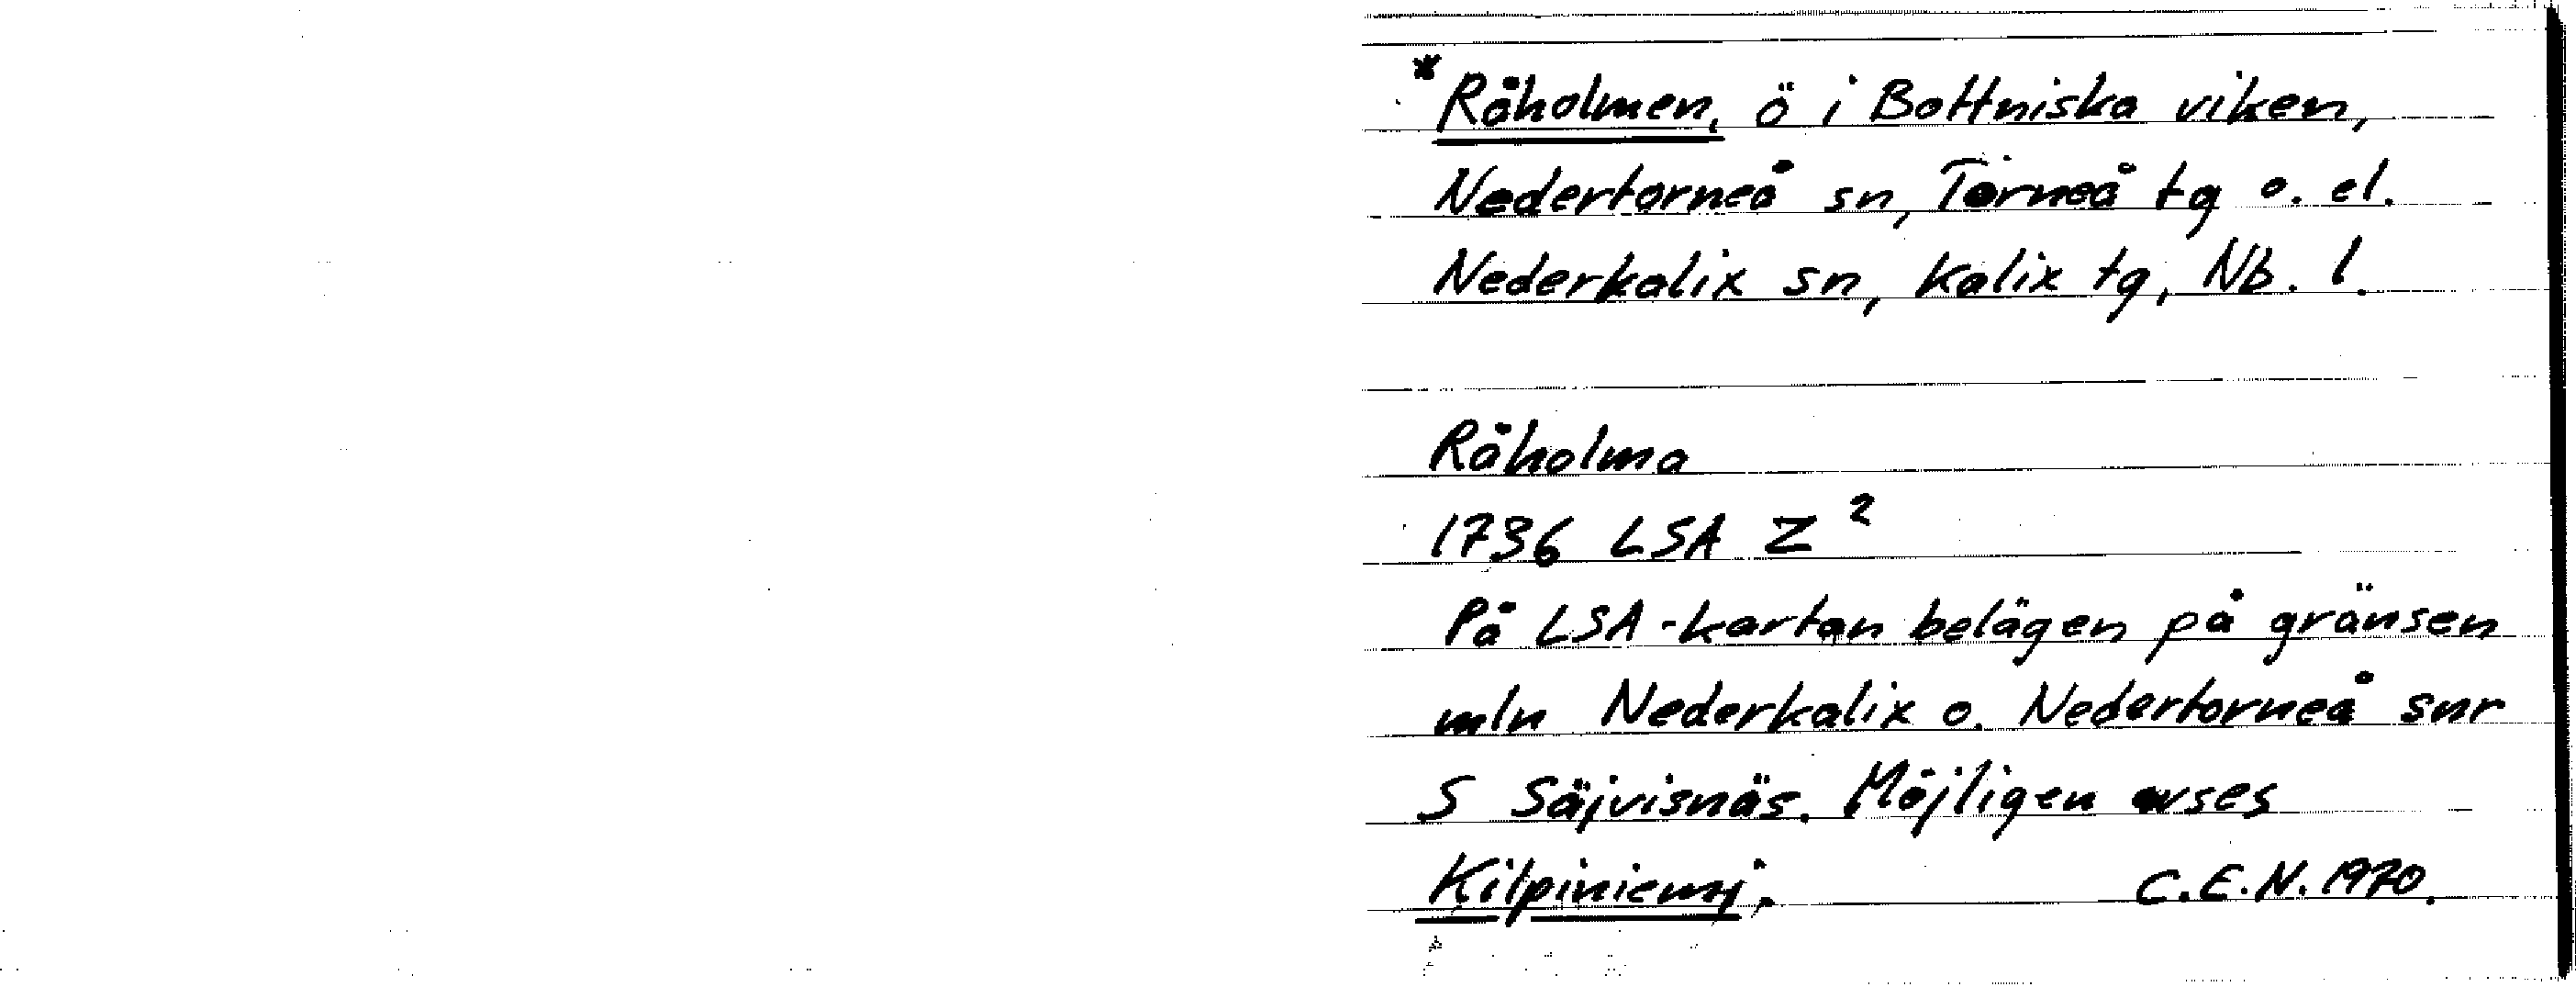 * Råholmen, ö i Bottniska viken,
Nedertorneå sn, Torneå tg o. el.
Nederkalix sn, Kalix tg, Nb. l.
Råholma
1736 LSA Z²
På LSA-kartan belägen på gränsen
mln Nederkalix o. Nedertorneå snr
S Säjvisnäs. Möjligen avses
Kilpiniemi.  C.E.N. 1970.